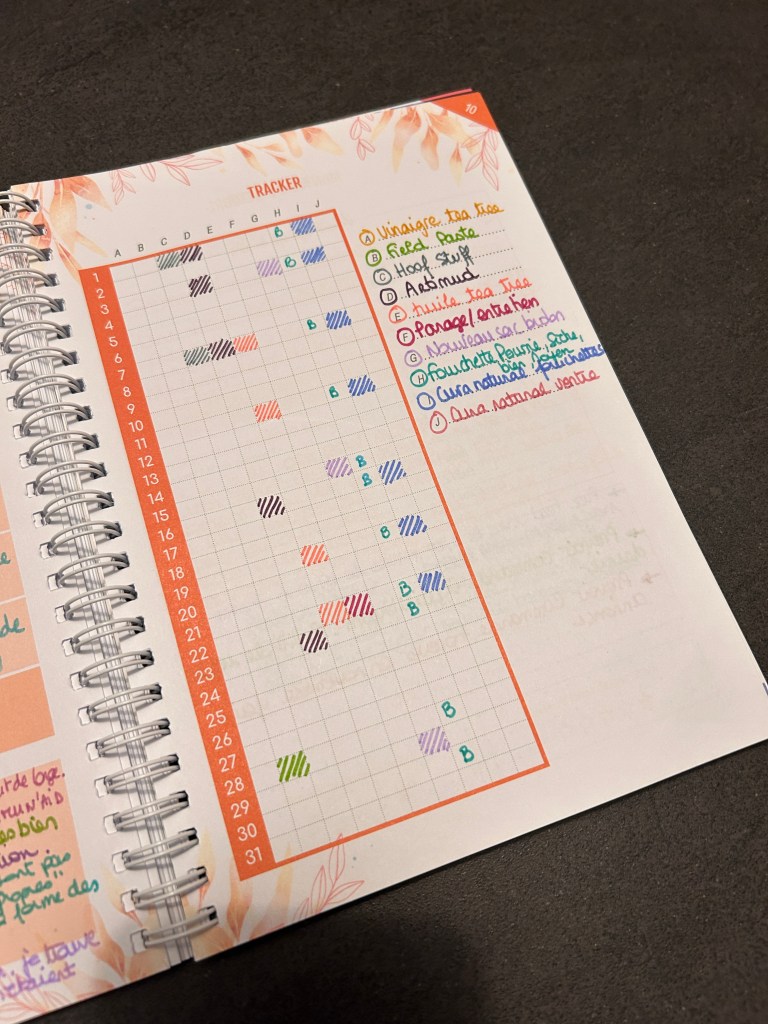 10
TRACKER
A B C D E F G H I J
1
2
3
4
5
6
7
8
9
10
11
12
13
14
15
16
17
18
19
20
21
22
23
24
25
26
27
28
29
30
31
B
B
B
B
B
B
B
B
B
B
B
A Vinaigre tea tree
B Field Paste
C Hoof Stuff
D Artimud
E huile tea tree
F Parage/entretien
G Nouveau sac bidon
H Fourchette Pourrie, Sèche,
bien, moyen,
I Cura natural fourchettes
J Cura natural ventre
de
bien
pas
forme des
je trouve